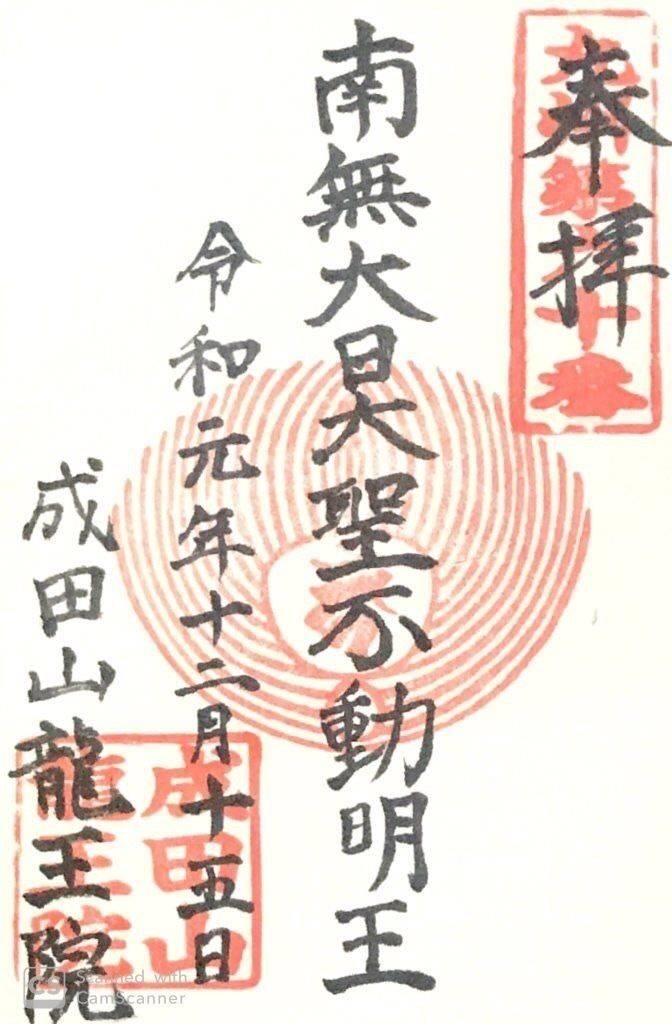 奉拝
南無大日大聖不動明王
令和元年十二月十五日
成田山龍王院
成田山
龍王院
CS Scanned with
CamScanner